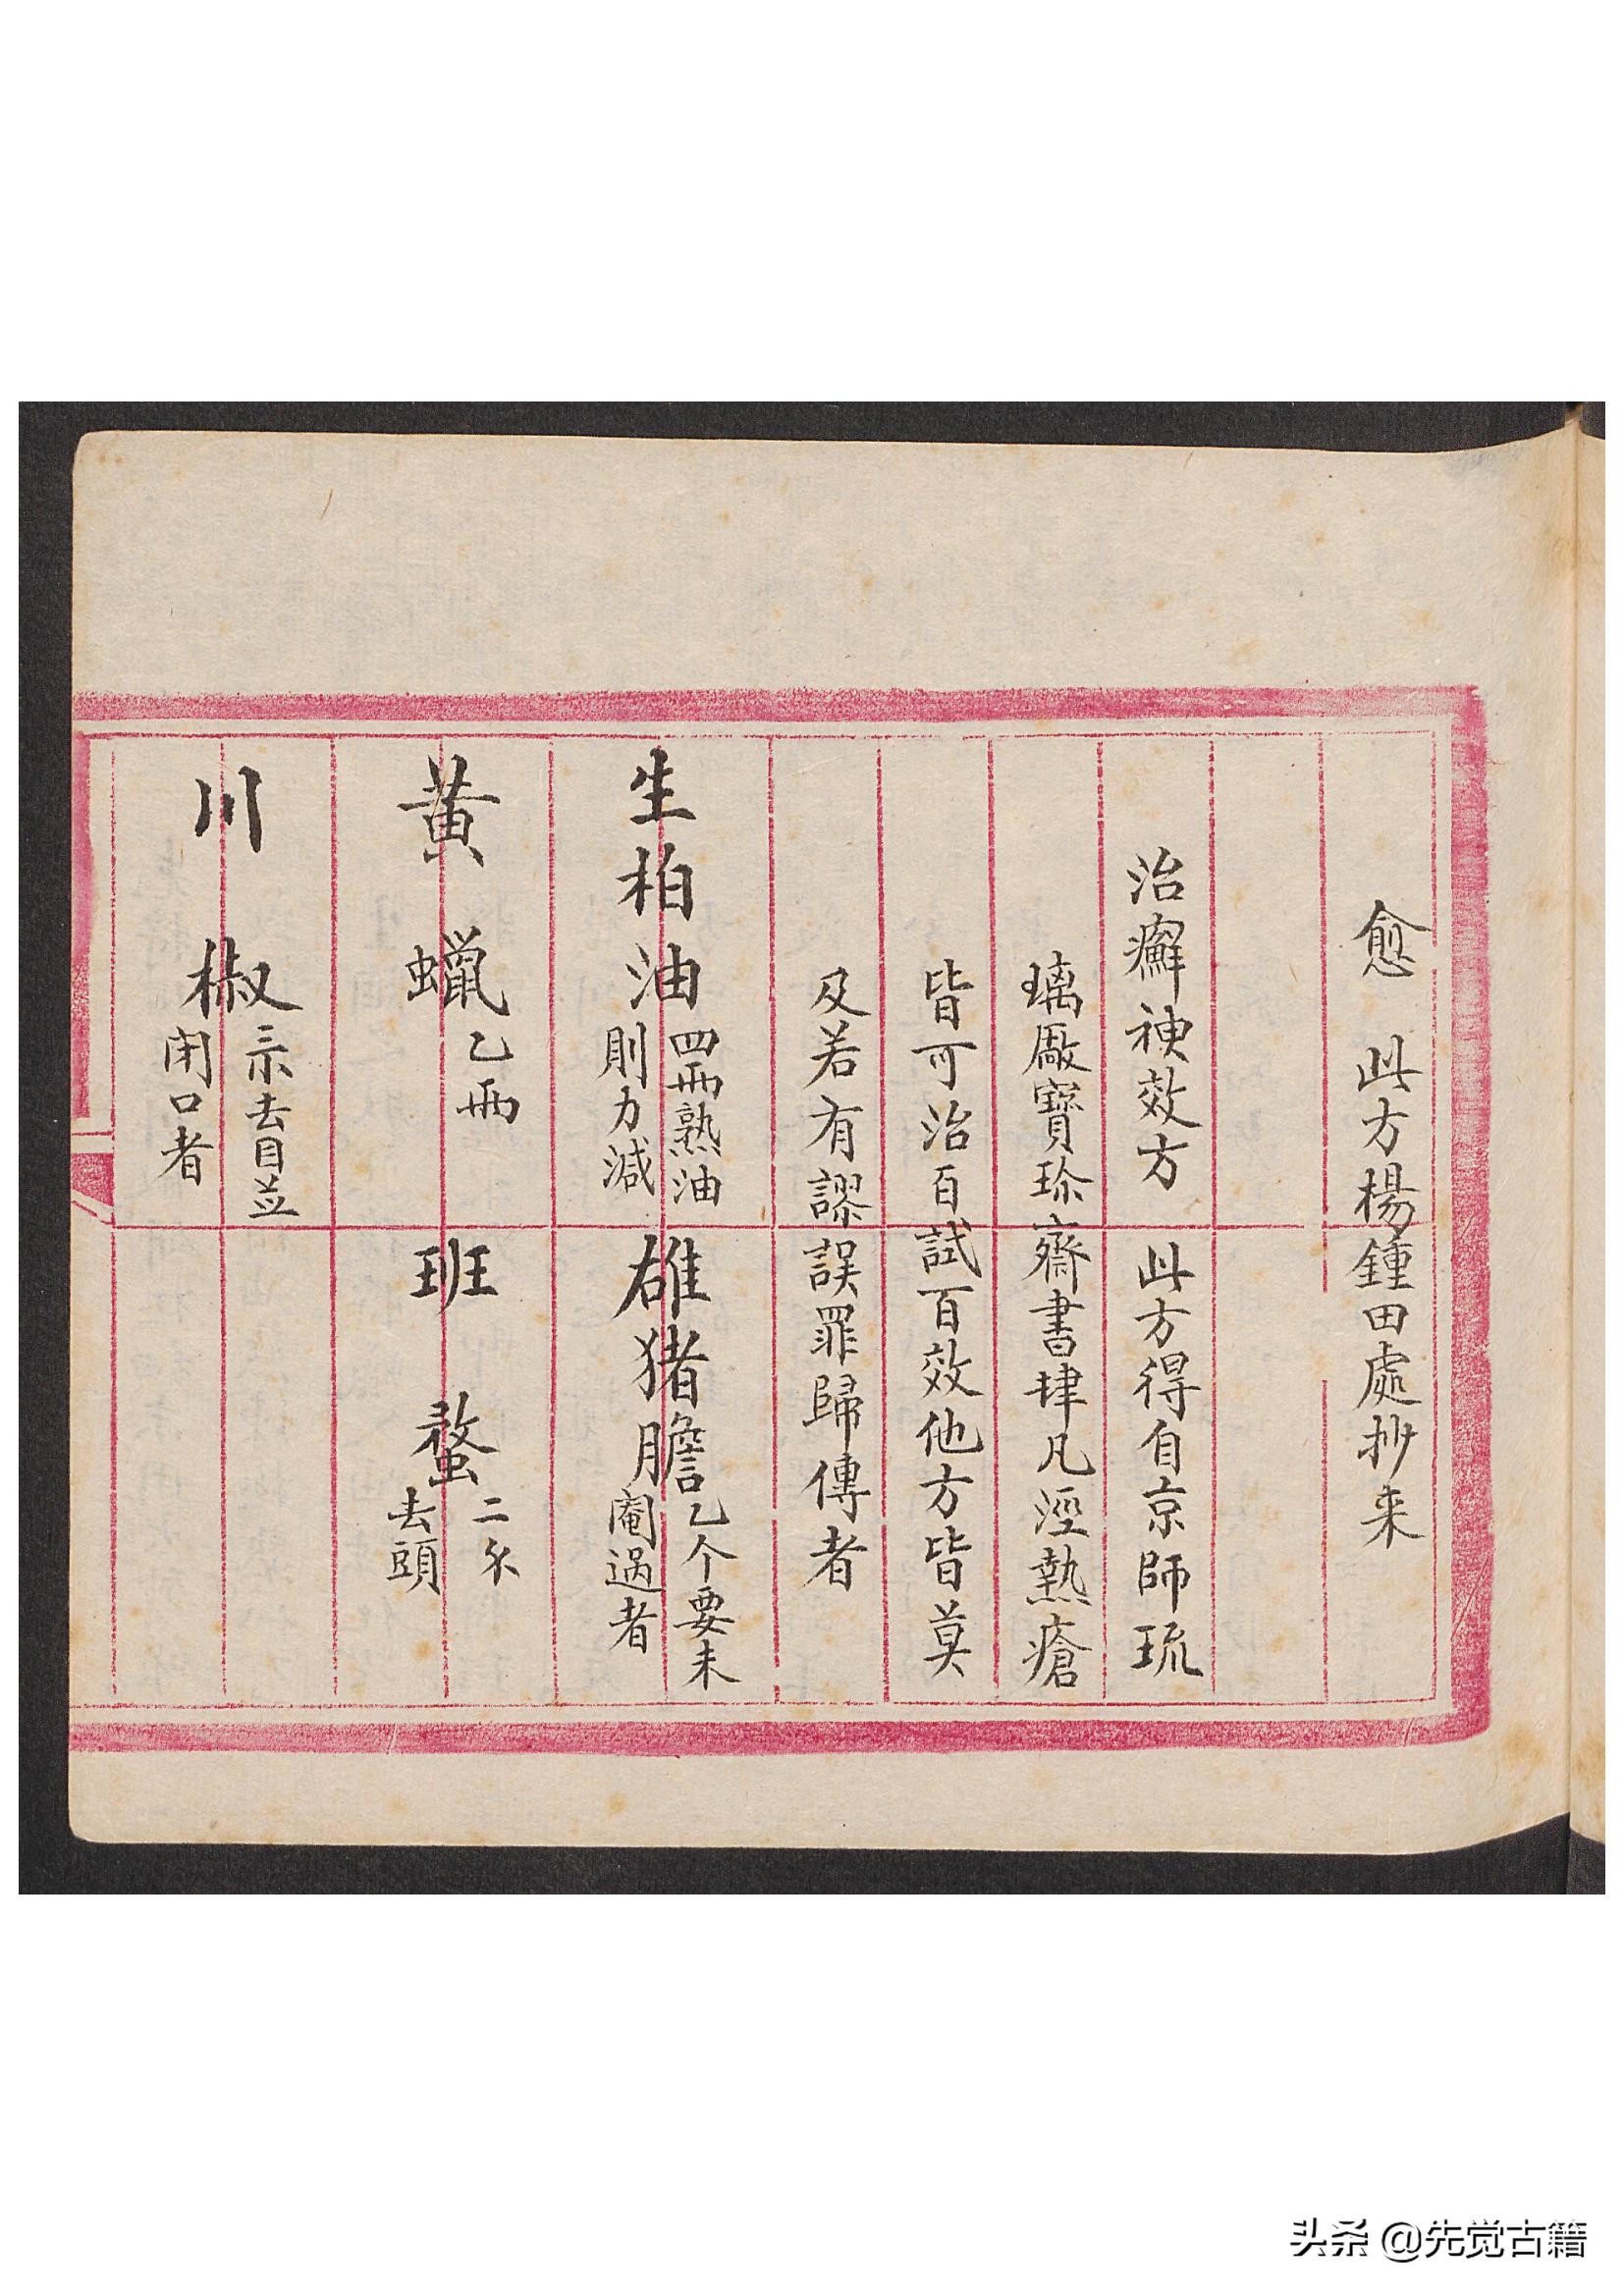 愈 此方楊鍾田處抄来
治癬神效方 此方得自京師琉
璃厰寶珍齋書肆凡溼熱瘡
皆可治百試百效他方皆莫
及若有謬誤罪歸傳者
生柏油四兩熟油則力減 雄猪膽乙个要未閹过者
黄蠟乙兩 班蝥二分去頭
川椒三錢去目並闭口者
头条 @先觉古籍